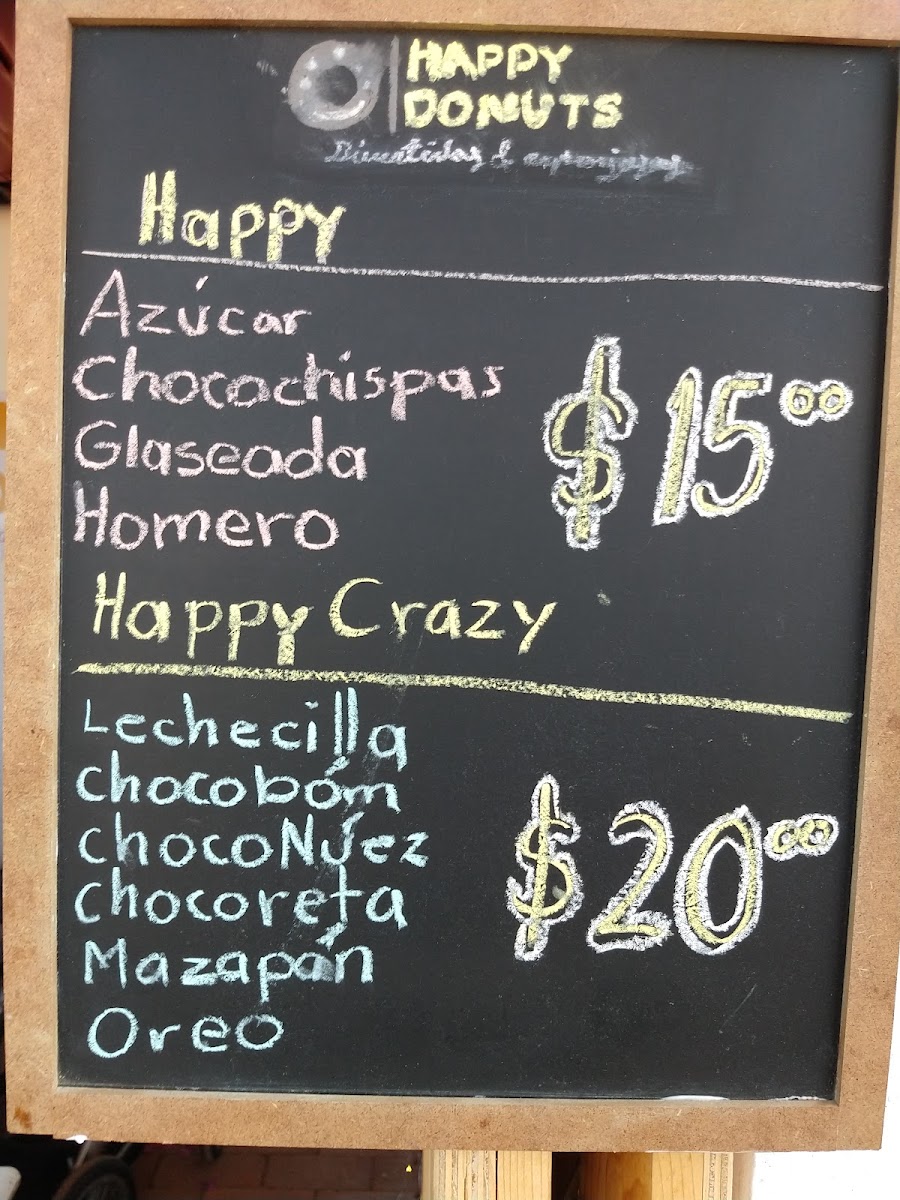 HAPPY
DONUTS
Divertidas & esponjosas
Happy
Azúcar
Chocochispas
Glaseada
Homero
$15⁰⁰
Happy Crazy
Lechecilla
Chocobóm
ChocoNúez
Chocoreta
Mazapán
Oreo
$20⁰⁰